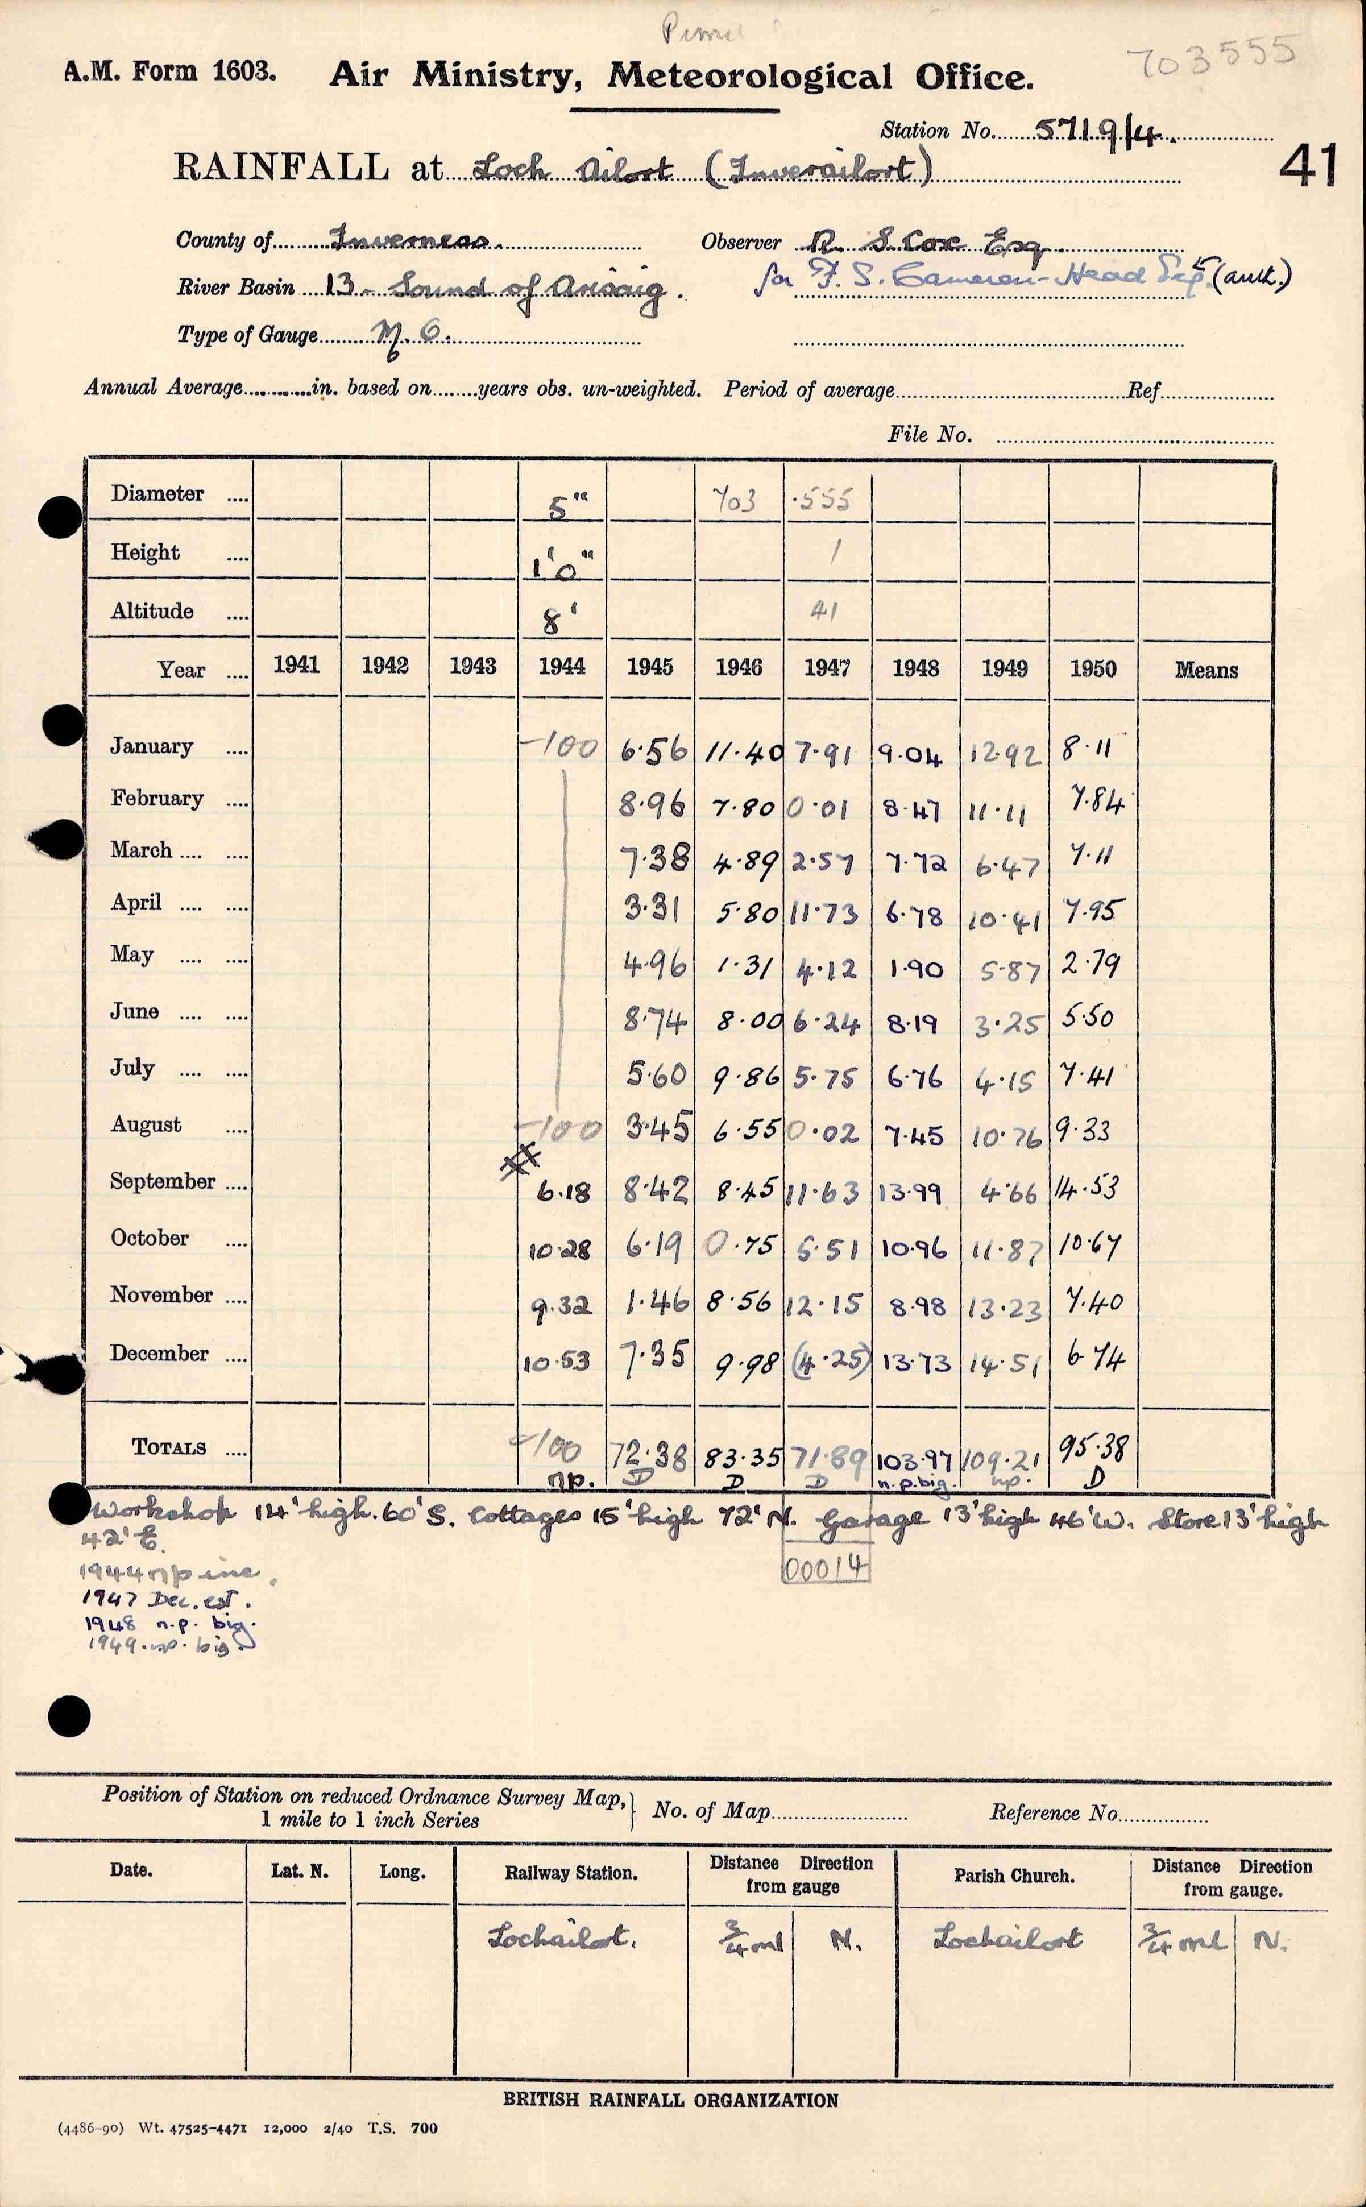 703555
A.M. Form 1603. Air Ministry, Meteorological Office.
Station No. 5719/4.
41
RAINFALL at Loch Ailort (Inverailort)
County of Inverness. Observer R. S. Cox Esq.
River Basin 13 - Sound of Arisaig. for F. S. Cameron-Head Esq. (auth.)
Type of Gauge M.O.
Annual Average in. based on years obs. un-weighted. Period of average Ref
File No.
Diameter .... 5" 703 .555
Height .... 1'0" 1
Altitude .... 8' 41
Year .... 1941 1942 1943 1944 1945 1946 1947 1948 1949 1950 Means
January .... -100 6.56 11.40 7.91 9.04 12.92 8.11
February .... 8.96 7.80 0.01 8.47 11.11 7.84
March .... .... 7.38 4.89 2.57 7.72 6.47 7.11
April .... .... 3.31 5.80 11.73 6.78 10.41 7.95
May .... .... 4.96 1.31 4.12 1.90 5.87 2.79
June .... .... 8.74 8.00 6.24 8.19 3.25 5.50
July .... .... 5.60 9.86 5.75 6.76 4.15 7.41
August .... -100 3.45 6.55 0.02 7.45 10.76 9.33
September .... 6.18 8.42 8.45 11.63 13.99 4.66 14.53
October .... 10.28 6.19 0.75 5.51 10.96 11.87 10.67
November .... 9.32 1.46 8.56 12.15 8.98 13.23 7.40
December .... 10.53 7.35 9.98 (4.25) 13.73 14.51 6.74
TOTALS .... -100 72.38 83.35 71.89 103.97 109.21 95.38
n.p. D D D n.p. big. n.p. D
Workshop 14' high. 60' S. Cottages 15' high 72' N. Garage 13' high 46' W. Store 13' high
42' E.
00014
1944 n p inc.
1947 Dec. est.
1948 n.p. big.
1949. n.p. big.
Position of Station on reduced Ordnance Survey Map, 1 mile to 1 inch Series No. of Map Reference No.
Date. Lat. N. Long. Railway Station. Distance Direction from gauge Parish Church. Distance Direction from gauge.
Lochailort. 3/4 ml N. Lochailort 3/4 ml N.
BRITISH RAINFALL ORGANIZATION
(4486-90) Wt. 47525-4471 12,000 2/40 T.S. 700